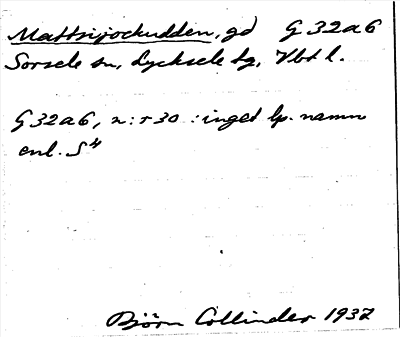 Mattsijockudden, gd G 32a6
Sorsele sn, Lycksele tg, Vbt l.
G 32a6, n:r 30 : inget lp. namn
enl. S4
Björn Collinder 1937